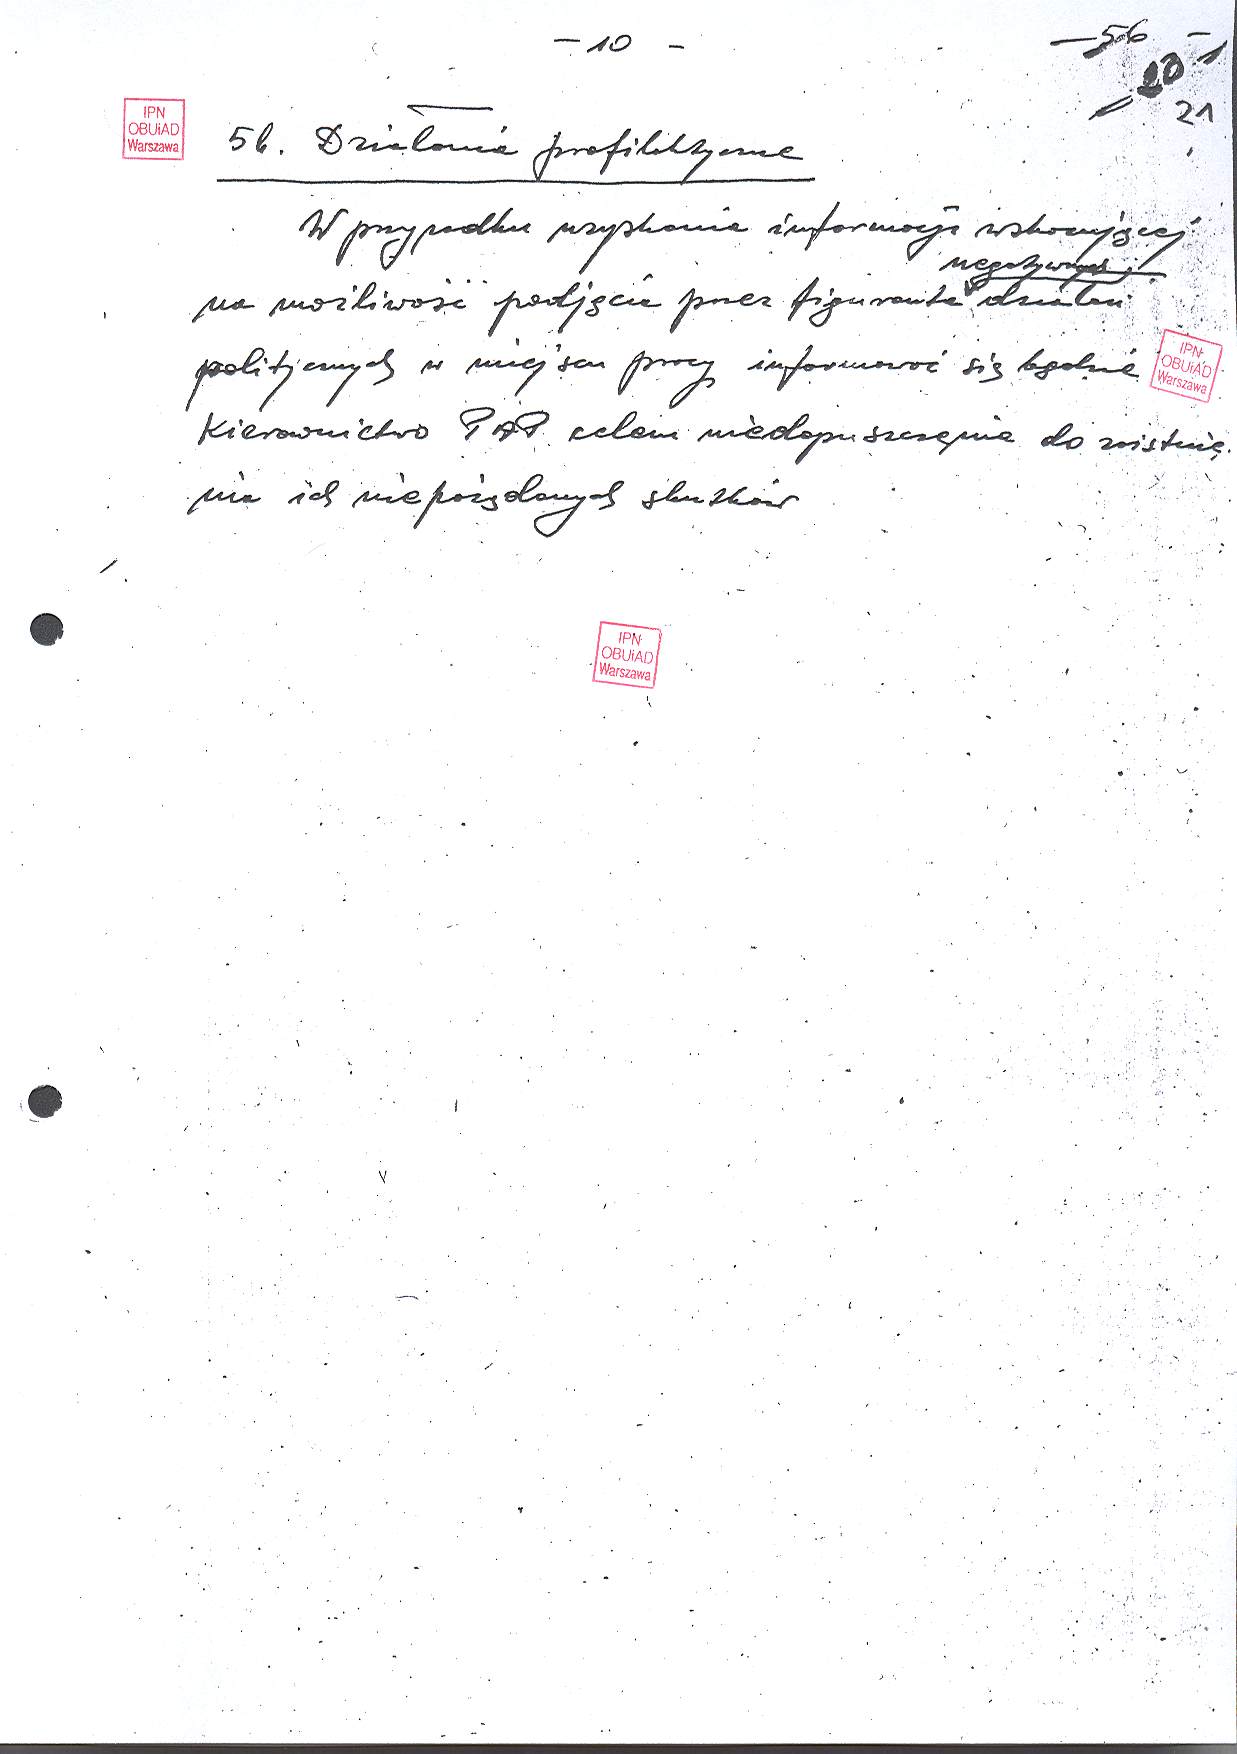 - 10 -
- 56 -
21
IPN
OBUiAD
Warszawa
5b. Działania profilaktyczne
W przypadku uzyskania informacji wskazującej
negatywnych
na możliwość podjęcia przez figuranta działań
politycznych w miejscu pracy informować się będzie
IPN
OBUiAD
Warszawa
Kierownictwo PAP celem niedopuszczenia do zaistnie
nia ich niepożądanych skutków
IPN
OBUiAD
Warszawa